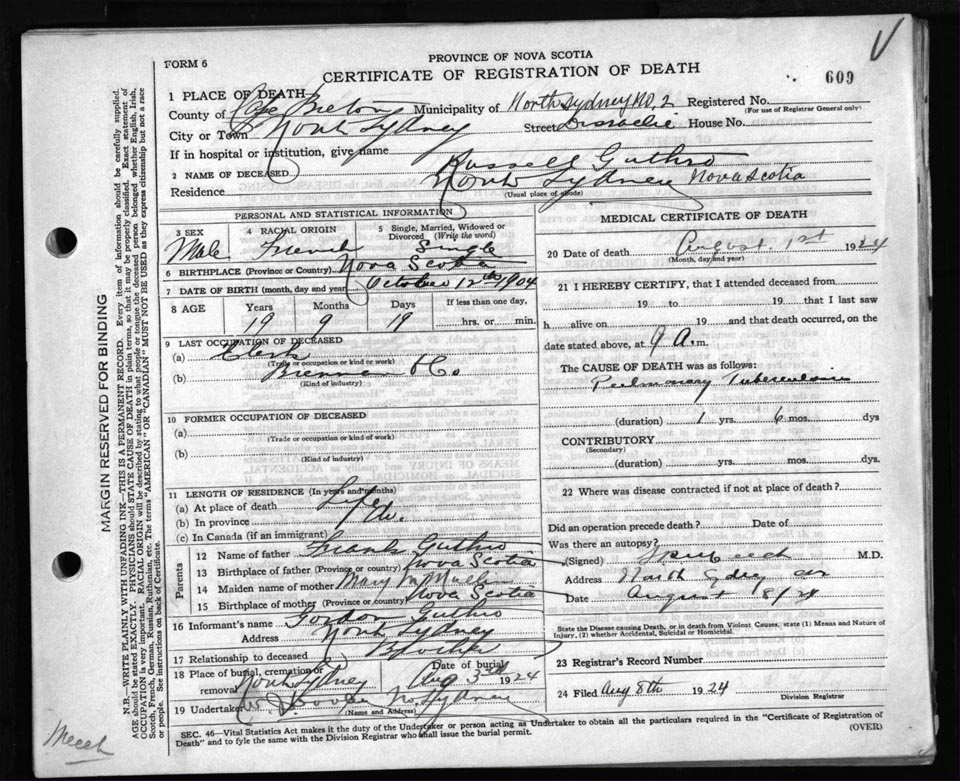 FORM 6
PROVINCE OF NOVA SCOTIA
CERTIFICATE OF REGISTRATION OF DEATH
609
1 PLACE OF DEATH
County of Cape Breton Municipality of North Sydney No, 2 Registered No.
(For use of Registrar General only)
City or Town North Sydney Street House No.
If in hospital or institution, give name
2 NAME OF DECEASED Russell Guthro
Residence North Sydney Nova Scotia
(Usual place of abode)
PERSONAL AND STATISTICAL INFORMATION
3 SEX 4 RACIAL ORIGIN 5 Single, Married, Widowed or Divorced (Write the word)
Male French Single
6 BIRTHPLACE (Province or Country) Nova Scotia
7 DATE OF BIRTH (month, day and year) October 12th 1904
8 AGE Years Months Days If less than one day,
19 9 19 hrs. or min.
9 LAST OCCUPATION OF DECEASED
(a) Clerk
(Trade or occupation or kind or work)
(b) Brennan & Co
(Kind of industry)
10 FORMER OCCUPATION OF DECEASED
(a)
(Trade or occupation or kind of work)
(b)
(Kind of Industry)
11 LENGTH OF RESIDENCE (In years and months)
(a) At place of death Life
(b) In province do.
(c) In Canada (if an immigrant)
Parents
12 Name of father Frank Guthro
13 Birthplace of father (Province or country) Nova Scotia
14 Maiden name of mother Mary
15 Birthplace of mother (Province or country) Nova Scotia
16 Informant's name Gordon Guthro
Address North Sydney
17 Relationship to deceased Brother
18 Place of burial, cremation or removal North Sydney Date of burial Aug 3rd 1924
19 Undertaker N. Sydney
(Name and Address)
MEDICAL CERTIFICATE OF DEATH
20 Date of death August 1st 1924
(Month, day and year)
21 I HEREBY CERTIFY, that I attended deceased from
19 to 19 that I last saw
h alive on 19 and that death occurred, on
date stated above, at 9 A. m.
The CAUSE OF DEATH was as follows:
Pulmonary Tuberculosis
(duration) 1 yrs. 6 mos. dys
CONTRIBUTORY
(Secondary)
(duration) yrs. mos. dys.
22 Where was disease contracted if not at place of death?
Did an operation precede death? Date of
Was there an autopsy?
(Signed) Meech M.D.
Address North Sydney
Date August 8/24
State the Disease causing Death, or in death from Violent Causes, state (1) Means and Nature of Injury, (2) whether Accidental, Suicidal or Homicidal.
23 Registrar's Record Number
24 Filed Aug 8th 1924
Division Registrar
SEC. 46—Vital Statistics Act makes it the duty of the Undertaker or person acting as Undertaker to obtain all the particulars required in the "Certificate of Registration of
Death" and to fyle the same with the Division Registrar who shall issue the burial permit. (OVER)
MARGIN RESERVED FOR BINDING
N.B.—WRITE PLAINLY WITH UNFADING INK—THIS IS A PERMANENT RECORD. Every item of information should be carefully supplied.
AGE should be stated EXACTLY. PHYSICIANS should STATE CAUSE OF DEATH in plain terms, so that it may be properly classified. Exact statement of
OCCUPATION is very important. RACIAL ORIGIN will be described by stating to what people or tongue the deceased person belonged whether English, Irish,
Scotch, French, German, Russian, Ruthenian, etc. The terms "AMERICAN" OR "CANADIAN" MUST NOT BE USED as they express citizenship but not a race
or people. See instructions on back of Certificate.
Meech